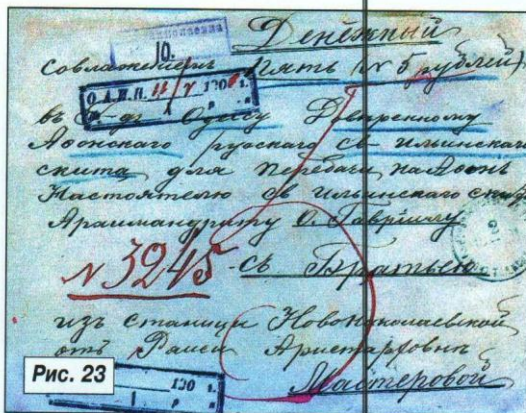 10.
Денежный
совложенiем Пять (N 5 рублей)
О.А.И.П. 11/V 1900 г.
въ г. Одессу Довѣренному
Афонского русского Св Ильинскаго
скита для передачи на Афонъ
Настоятелю Св Ильинскаго скита
Архимандриту О. Гаврiилу
N 3245 съ Братьею
изъ станицы Новониколаевской
отъ Раисы Аристарховны
120 г.
Мастеровой
Рис. 23